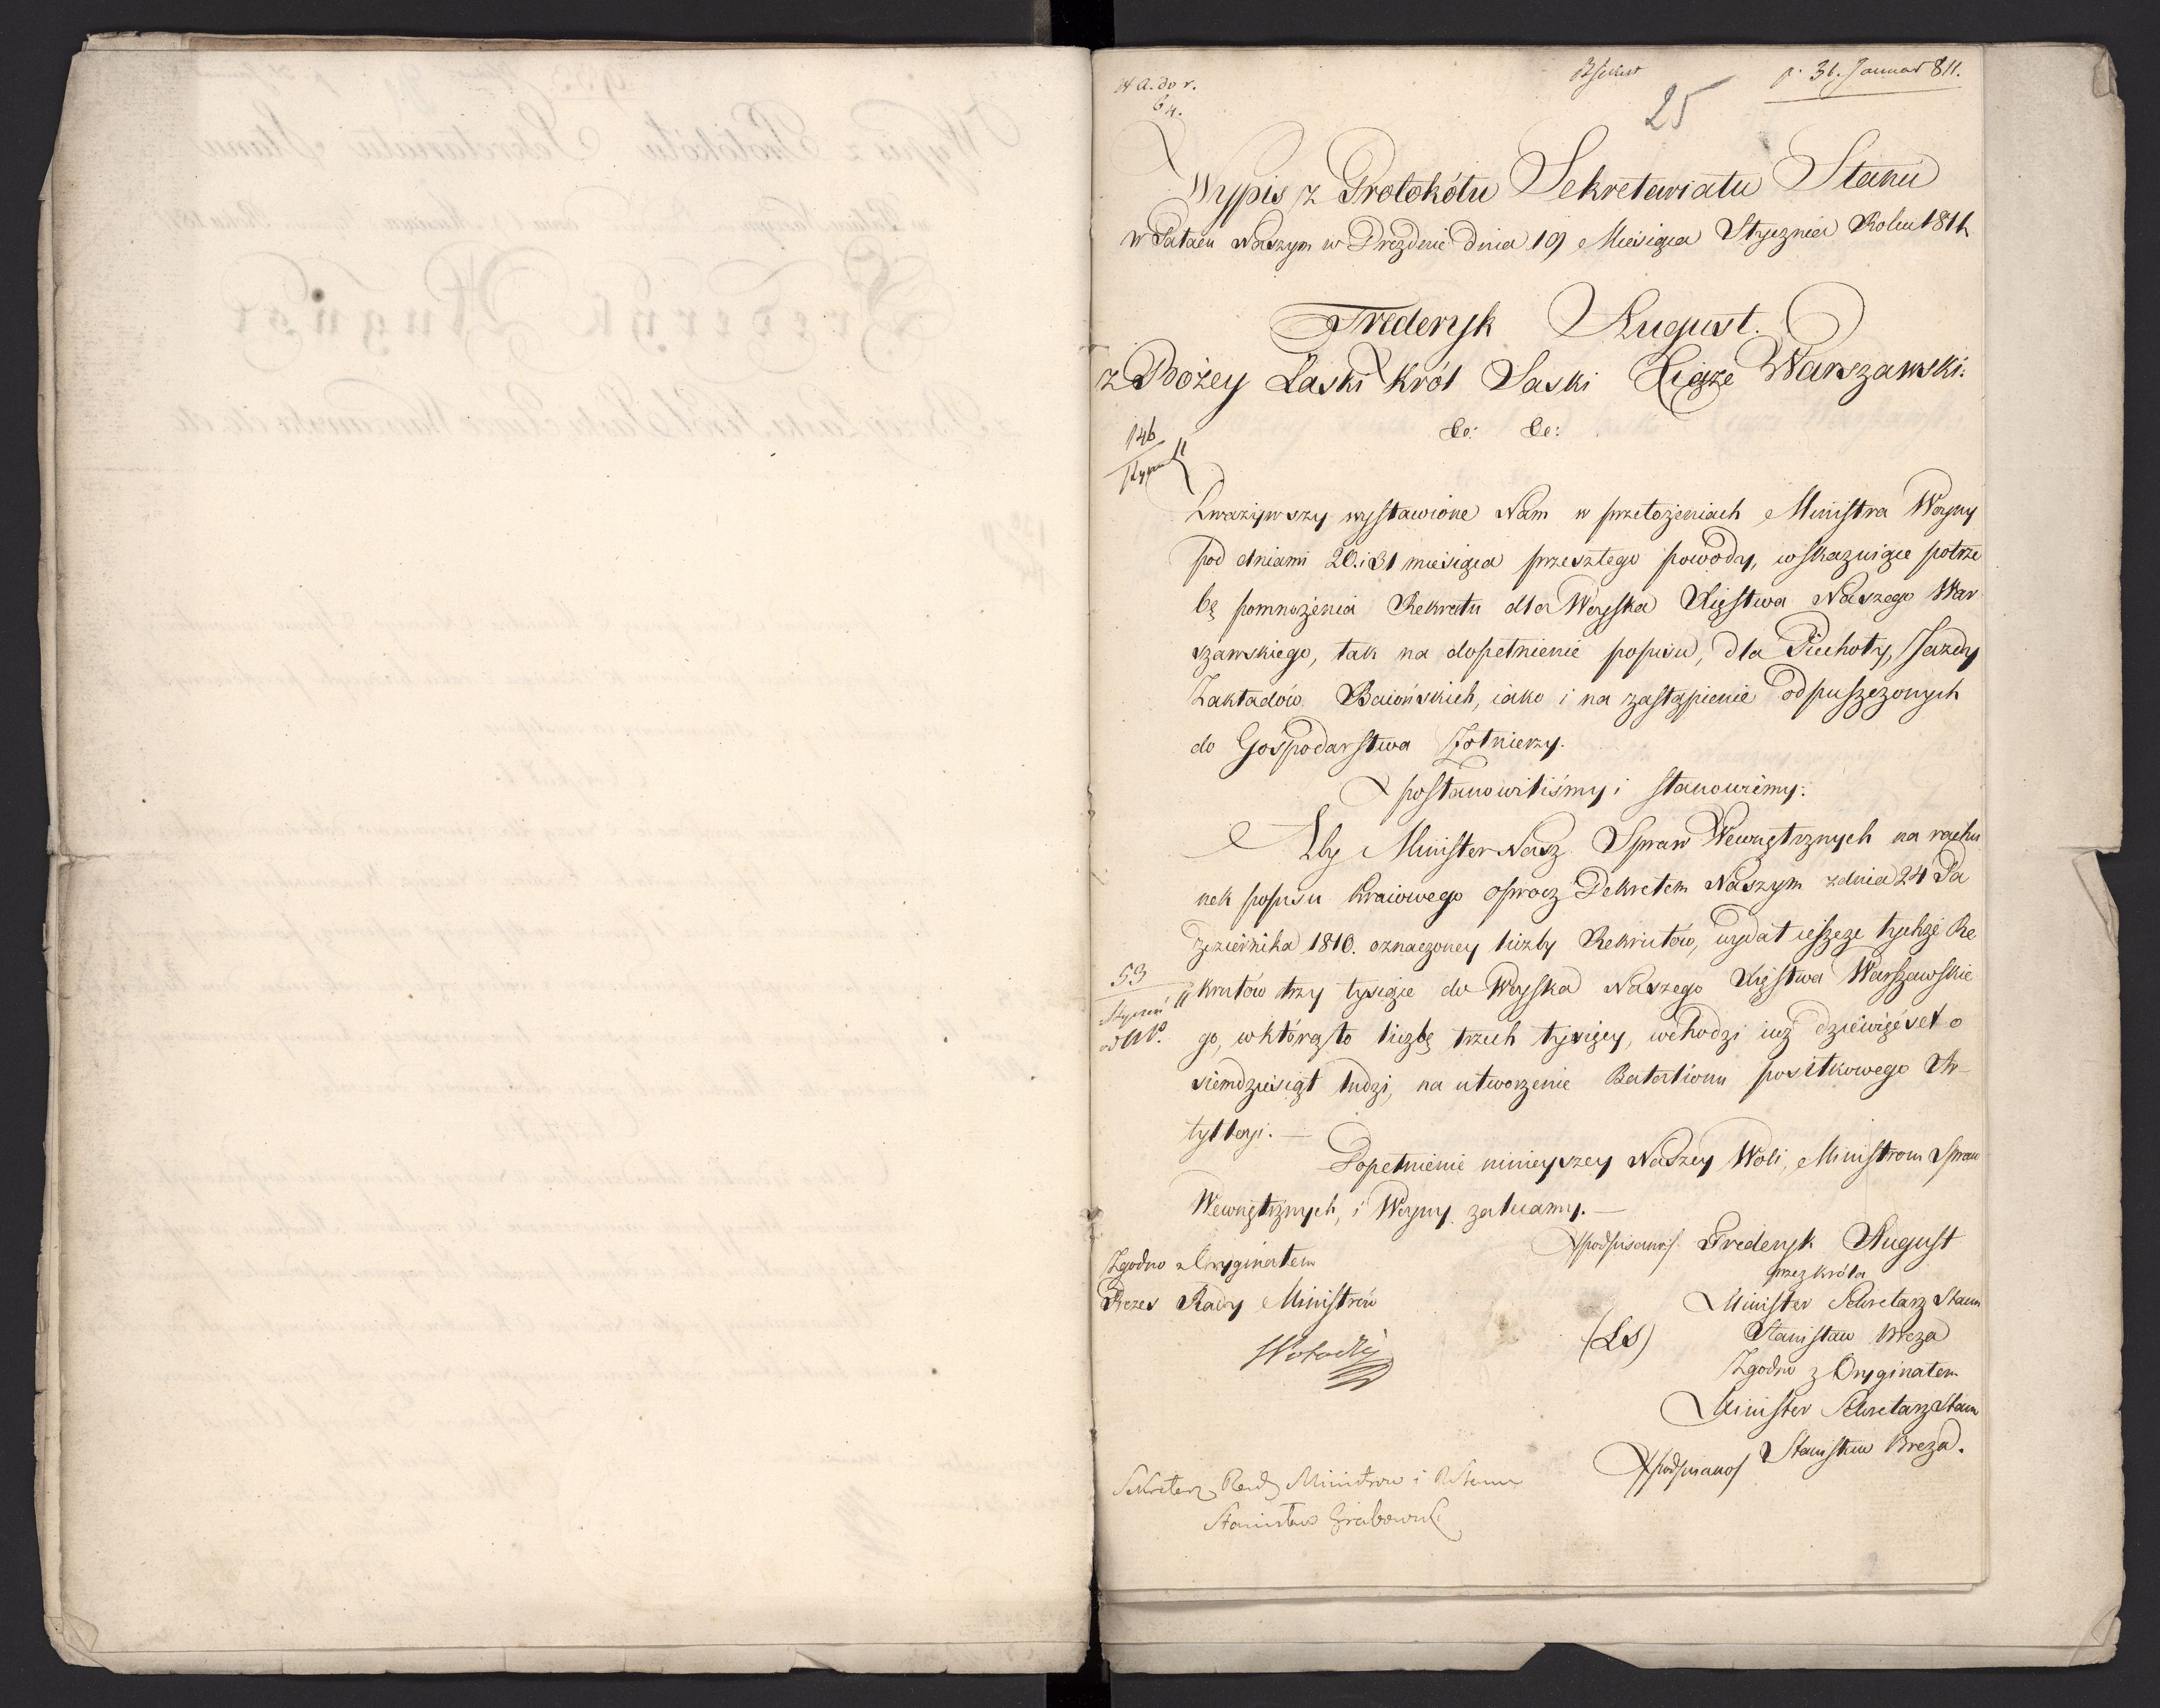 p. 31. Januar 811.
25
Wypis z Protokółu Sekretariatu Stanu
w Pałacu Naszym w Dreźnie dnia 19 Miesiąca Stycznia Roku 1811
Frederyk August.
z Bożey Łaski Król Saski Xiąże Warszawski:
&c: &c:
146
Zważywszy wystawione Nam w przełożeniach Ministra Woyny
pod dniami 20. i 31 miesiąca przeszłego powody, wskazuiące potrze
bę pomnożenia Rekrutu dla Woyska Xięstwa Naszego War
szawskiego, tak na dopełnienie popisu, dla Piechoty, Jazdy
Zakładów Baiońskich, iako i na zastąpienie odpuszczonych
do Gospodarstwa Żołnierzy.
postanowiliśmy i stanowiemy:
Aby Minister Nasz Spraw Wewnętrznych na rachu
nek popisu Kraiowego oprócz Dekretem Naszym z dnia 24 Pa
ździernika 1810. oznaczoney liczby Rekrutów, wydał ieszcze tychże Re
krutów trzy tysiące do Woyska Naszego Xięstwa Warszawskie
53
Styczeń
go, w którą to liczbę trzech tysięcy, wchodzi iuż dziewięćset o
siemdziesiąt ludzi, na utworzenie Batalionu posiłkowego Ar-
tylleryi. —
Dopełnienie ninieyszey Naszey Woli, Ministrom Spraw
Wewnętrznych, i Woyny zalecamy. —
podpisano Frederyk August
przez Króla
Minister Sekretarz Stanu
(LS) Stanisław Breza
Zgodno z Oryginałem
Minister Sekretarz Stanu
podpisano Stanisław Breza.
Zgodno z Oryginałem
Prezes Rady Ministrów
Sekretarz Rady Ministrów i R Stanu
Stanisław Grabowski